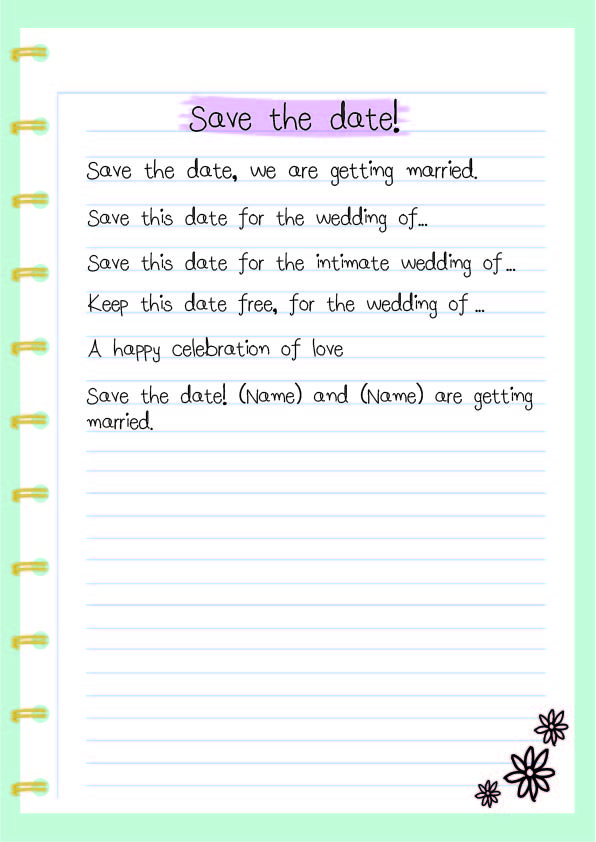 Save the date!
Save the date, we are getting married.
Save this date for the wedding of...
Save this date for the intimate wedding of ...
Keep this date free, for the wedding of ...
A happy celebration of love
Save the date! (Name) and (Name) are getting
married.